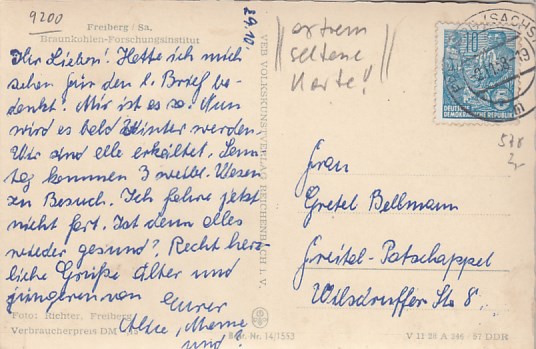 9200
29.10.
Freiberg / Sa.
Braunkohlen-Forschungsinstitut
Ihr Lieben! Hatte ich mich
schon für den l. Brief be-
dankt? Mir ist es so. Nun
wird es bald Winter werden
Wir sind alle erkältet. Sonn
tag kommen 3 weibl. Wesen
zu Besuch. Ich fahre jetzt
nicht fort. Ist denn alles
wieder gesund? Recht herz-
liche Grüße älter und
jüngeren von
Eurer
und
Foto: Richter, Freiberg
Verbraucherpreis DM
Best. Nr. 14/1553
VEB VOLKSKUNSTVERLAG REICHENBACH I. V.
extrem
seltene
Karte!
10
DEUTSCHE
DEMOKRATISCHE REPUBLIK
(SACHS
578
Frau
Gretel Bellmann
Freital-Potschappel
Wilsdruffer Str 8.
V 11 28 A 346 / 57 DDR